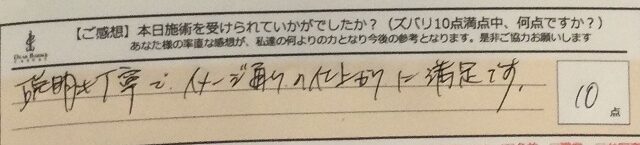 【ご感想】本日施術を受けられていかがでしたか？（ズバリ10点満点中、何点ですか？）
あなた様の率直な感想が、私達の何よりの力となり今後の参考となります。是非ご協力お願いします
説明も丁寧で、イメージ通りの仕上がりに満足です。
10
点